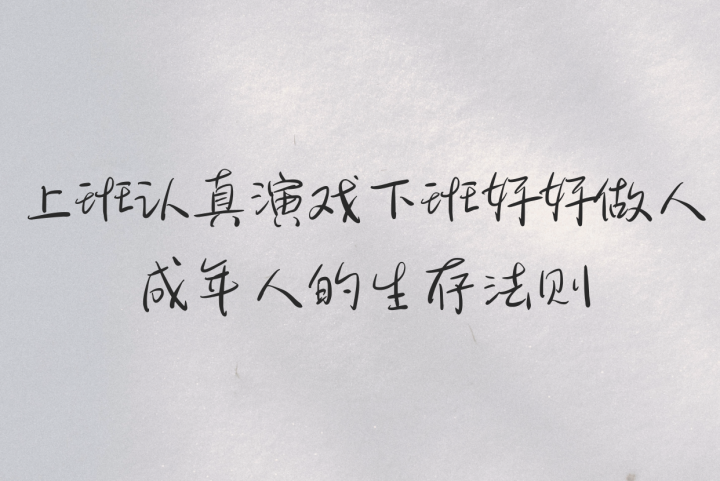 上班认真演戏下班好好做人
成年人的生存法则